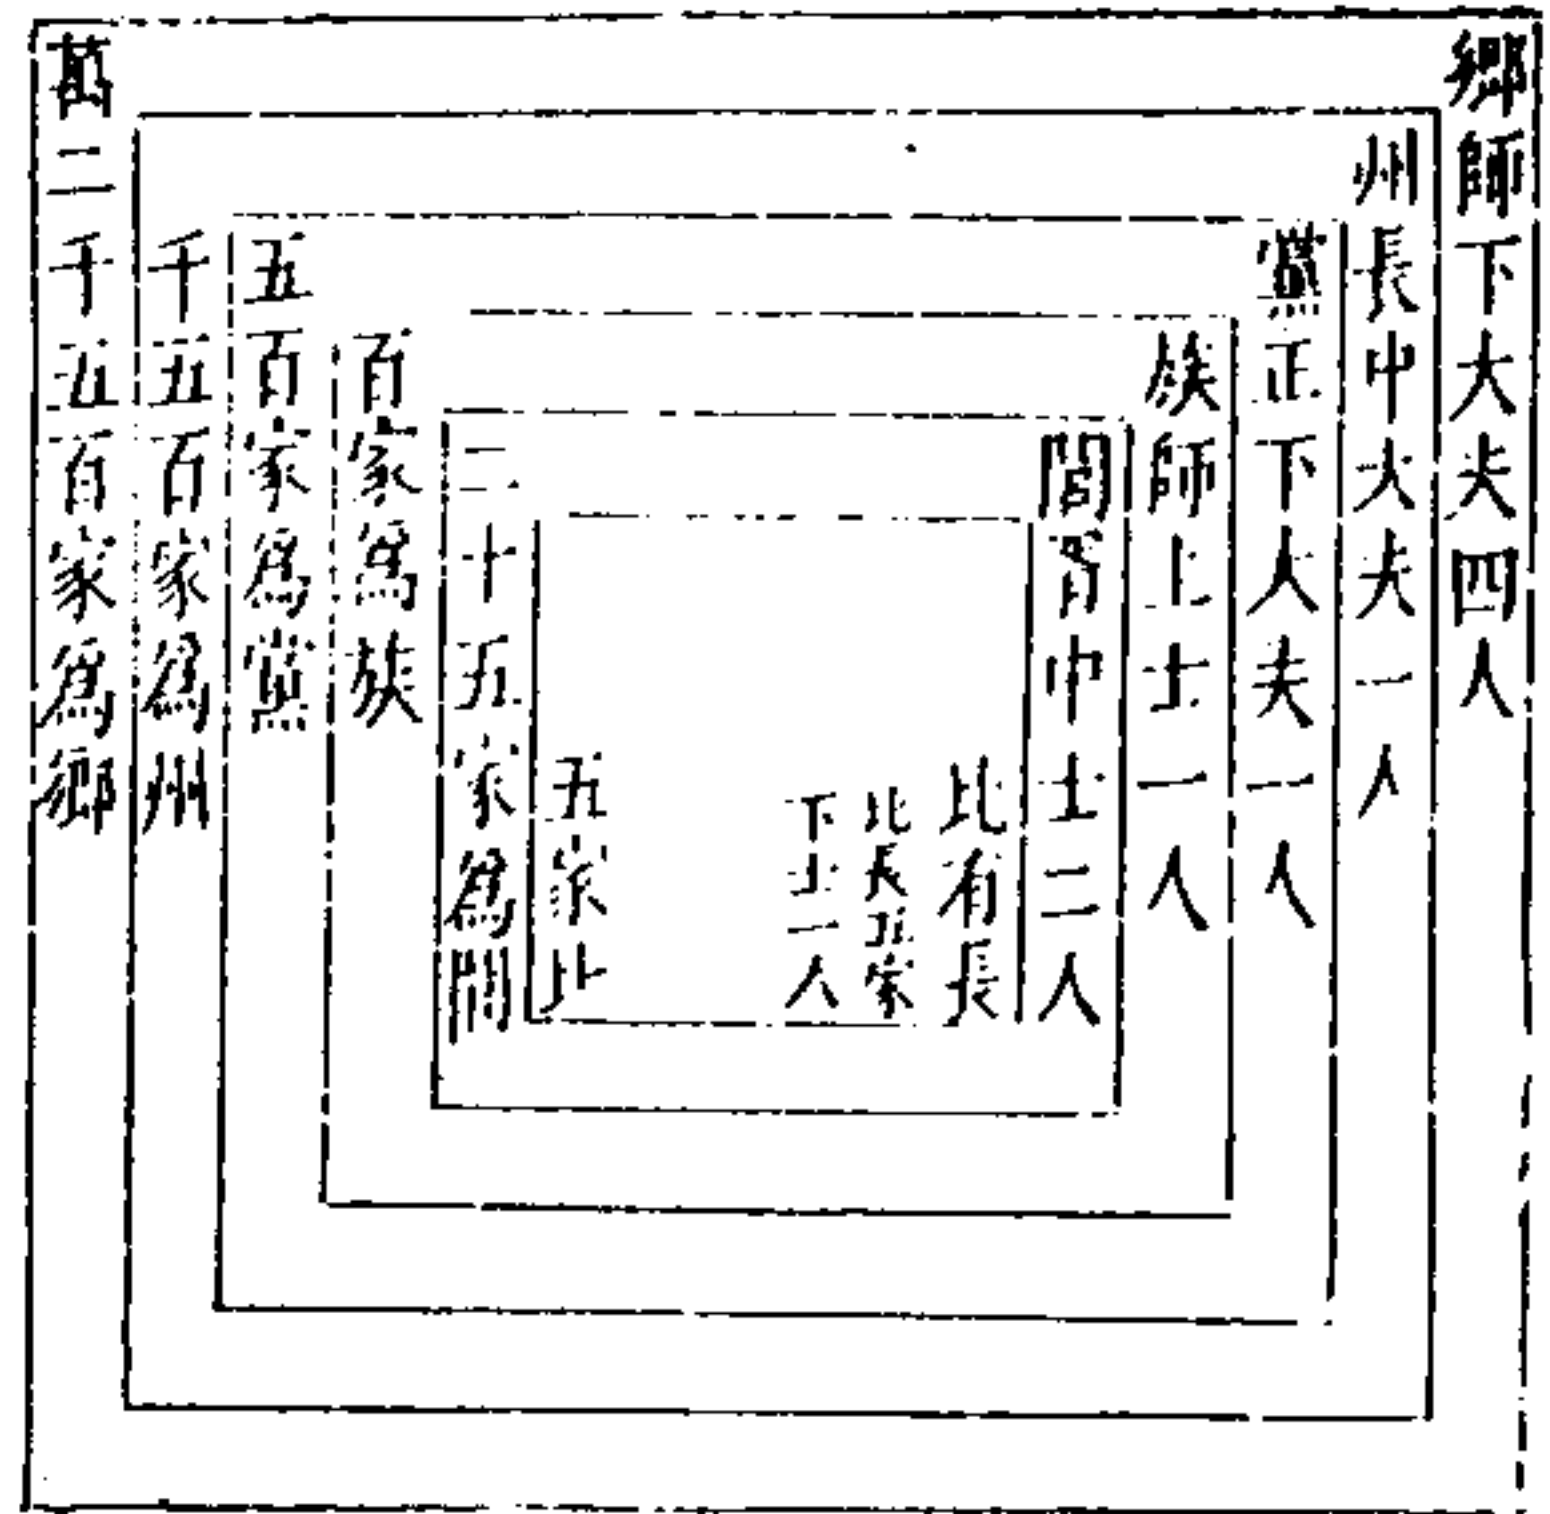 鄉師下大夫四人
州長中大夫一人
黨正下大夫一人
族師上士一人
閭胥中士二人
比有長
比長五家
下士一人
五家比
二十五家爲閭
百家爲族
五百家爲黨
千五百家爲州
萬二千五百家爲鄉